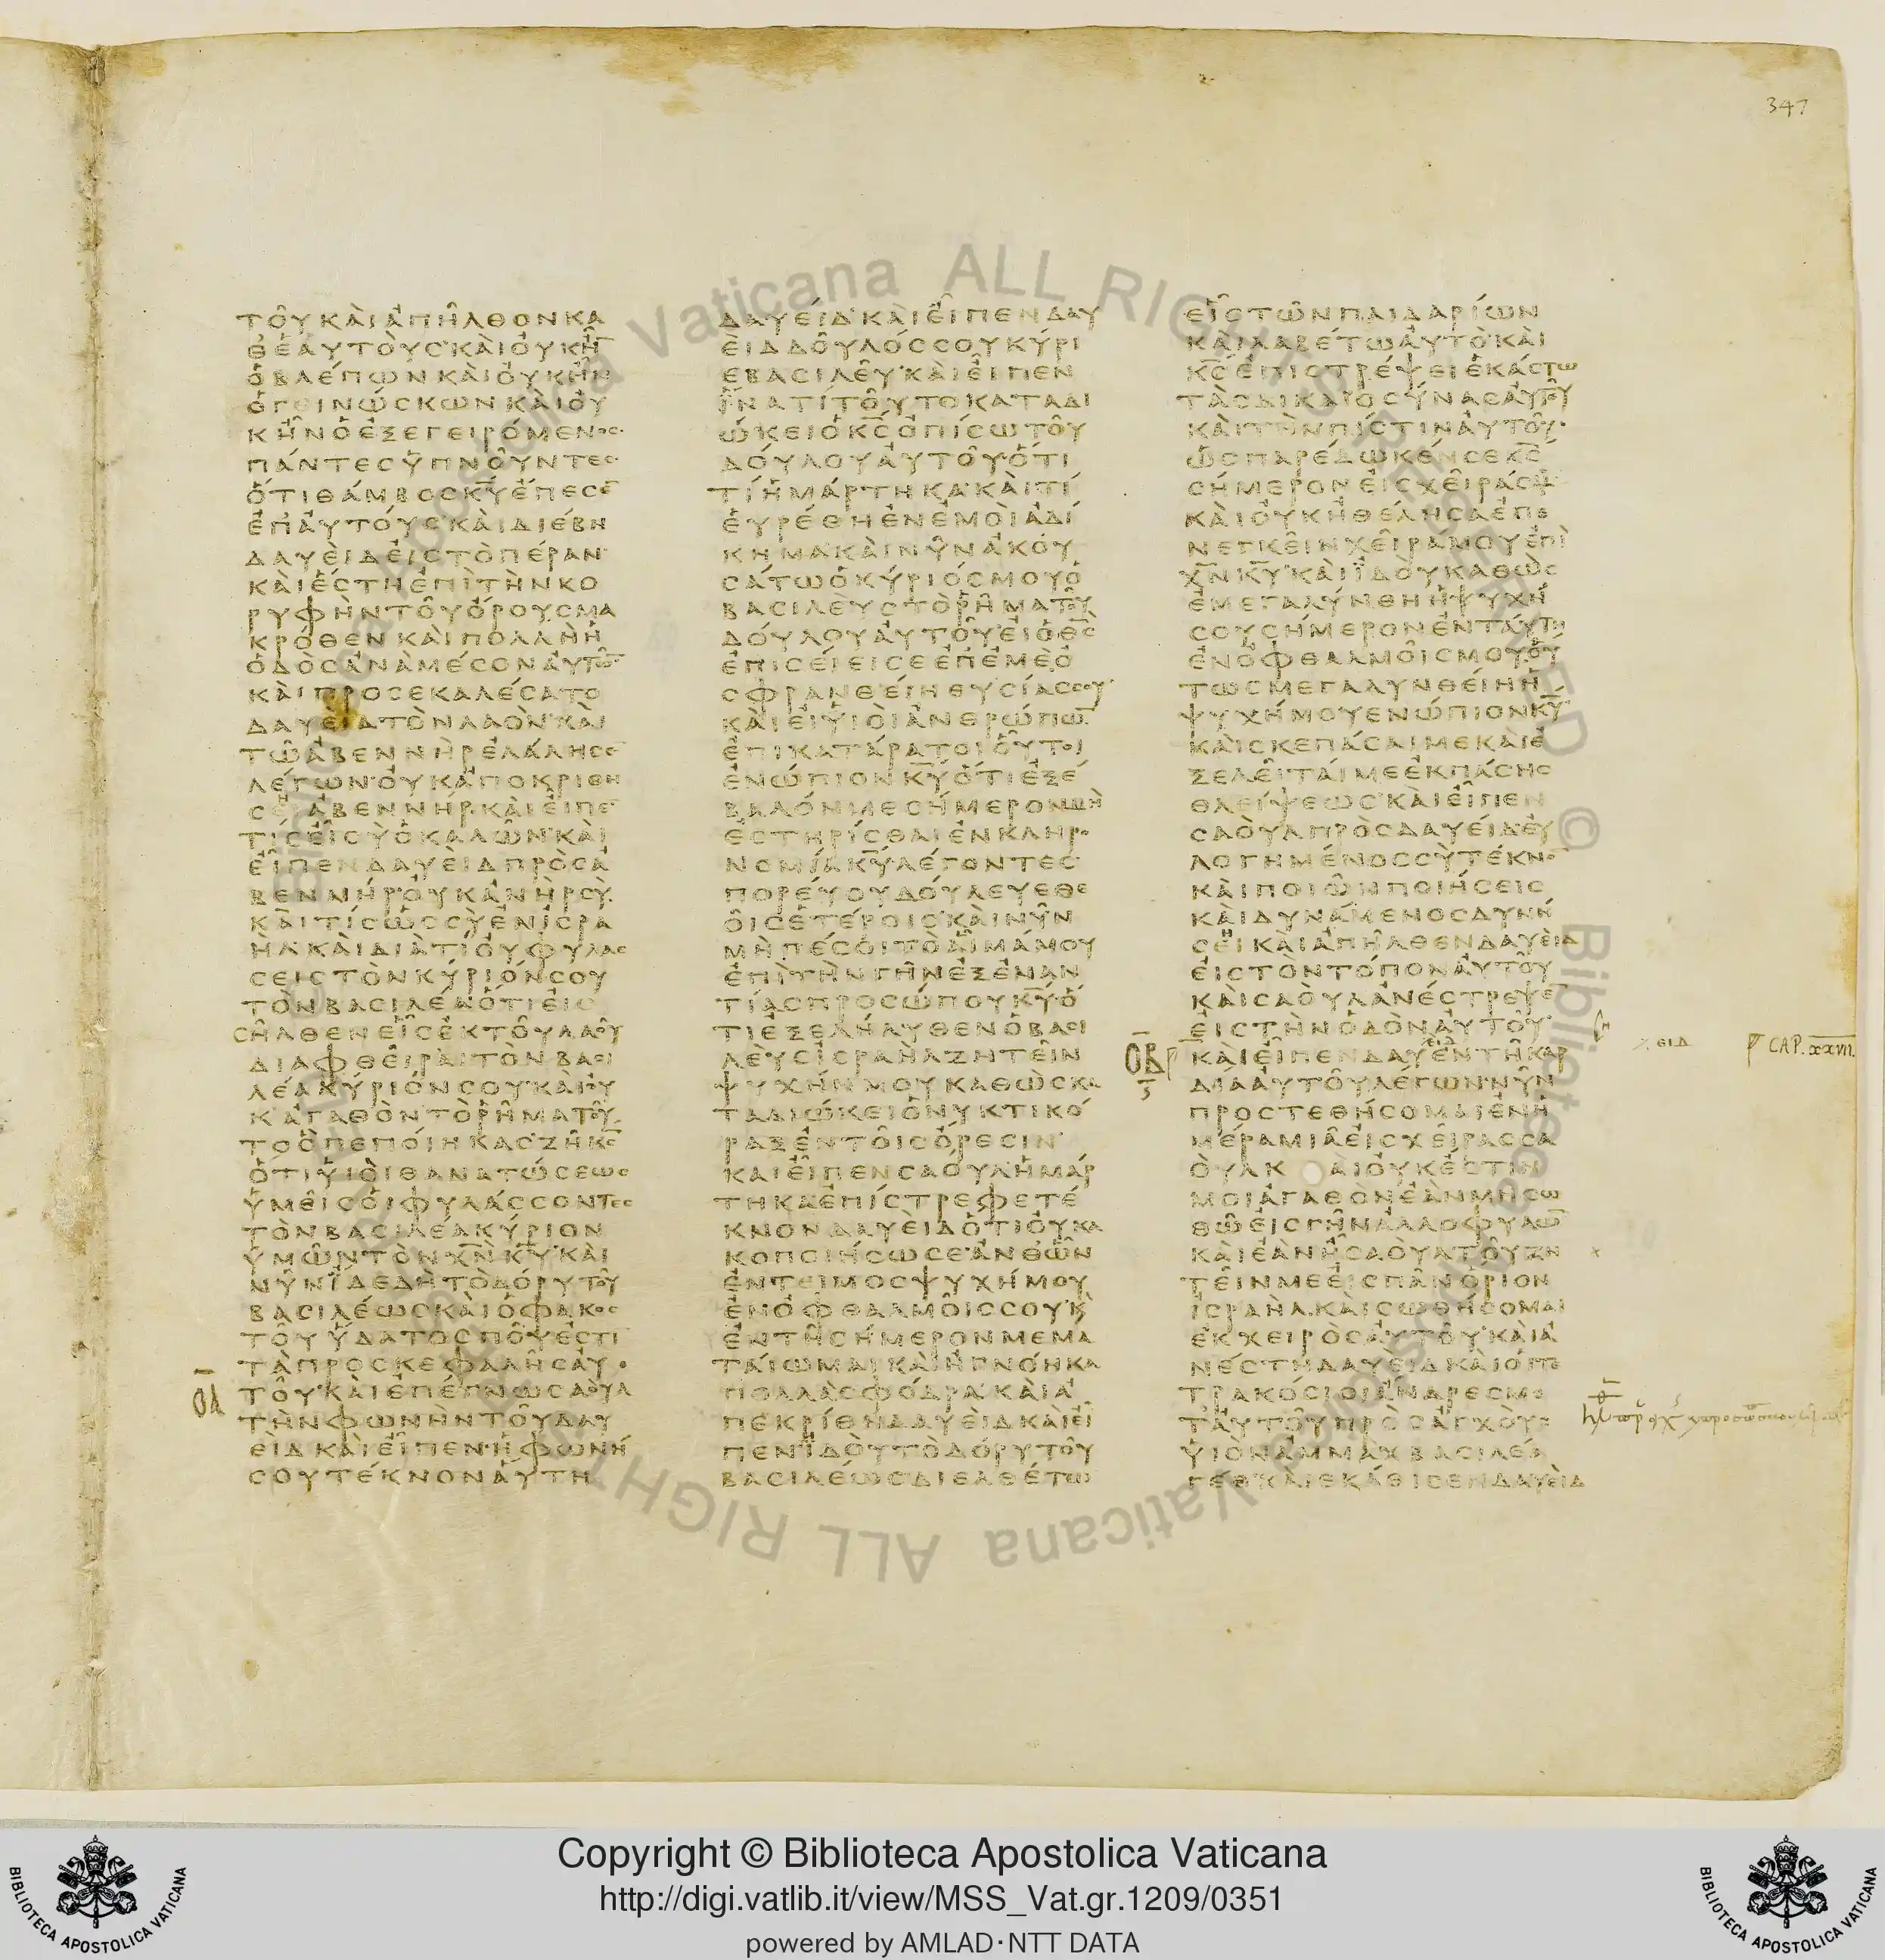 347
ΤΟΥΚΑΙΑΠΗΛΘΟΝΚΑ
ΘΕΑΥΤΟΥΣΚΑΙΟΥΚΗ̅
ΟΒΛΕΠΩΝΚΑΙΟΥΚΗΝ
ΟΓΕΙΝΩΣΚΩΝΚΑΙΟΥ
ΚΗΝΟΕΞΕΓΕΙΡΟΜΕΝΟΣ
ΠΑΝΤΕΣΥΠΝΟΥΝΤΕΣ
ΟΤΙΘΑΜΒΟΣΚ̅Υ̅ΕΠΕΣΕ̅
ΕΠΑΥΤΟΥΣΚΑΙΔΙΕΒΗ
ΔΑΥΕΙΔΕΙΣΤΟΠΕΡΑΝ
ΚΑΙΕΣΤΗΕΠΙΤΗΝΚΟ
ΡΥΦΗΝΤΟΥΟΡΟΥΣΜΑ
ΚΡΟΘΕΝΚΑΙΠΟΛΛΗΗ
ΟΔΟΣΑΝΑΜΕΣΟΝΑΥΤΩ̅
ΚΑΙΠΡΟΣΕΚΑΛΕΣΑΤΟ
ΔΑΥΕΙΔΤΟΝΛΑΟΝΚΑΙ
ΤΩΑΒΕΝΝΗΡΕΛΑΛΗΣΕ̅
ΛΕΓΩΝΟΥΚΑΠΟΚΡΙΘΗ
ΣΕΙΑΒΕΝΝΗΡΚΑΙΕΙΠΕ̅
ΤΙΣΕΙΣΥΟΚΑΛΩΝΚΑΙ
ΕΙΠΕΝΔΑΥΕΙΔΠΡΟΣΑ
ΒΕΝΝΗΡΟΥΚΑΝΗΡΣΥ
ΚΑΙΤΙΣΩΣΣΥΕΝΙΣΡΑ
ΗΛΚΑΙΔΙΑΤΙΟΥΦΥΛΑΣ
ΣΕΙΣΤΟΝΚΥΡΙΟΝΣΟΥ
ΤΟΝΒΑΣΙΛΕΑΟΤΙΕΙΣ
ΣΗΛΘΕΝΕΙΣΕΚΤΟΥΛΑΟΥ
ΔΙΑΦΘΕΙΡΑΙΤΟΝΒΑΣΙ
ΛΕΑΚΥΡΙΟΝΣΟΥΚΑΙΟΥ
ΚΑΓΑΘΟΝΤΟΡΗΜΑΤΟΥ
ΤΟΟΠΕΠΟΙΗΚΑΣΖΗΚ̅Σ̅
ΟΤΙΥΙΟΙΘΑΝΑΤΩΣΕΩΣ
ΥΜΕΙΣΟΙΦΥΛΑΣΣΟΝΤΕΣ
ΤΟΝΒΑΣΙΛΕΑΚΥΡΙΟΝ
ΥΜΩΝΤΟΝΧ̅Ν̅Κ̅Υ̅ΚΑΙ
ΝΥΝΙΔΕΔΗΤΟΔΟΡΥΤΟΥ
ΒΑΣΙΛΕΩΣΚΑΙΟΦΑΚΟΣ
ΤΟΥΥΔΑΤΟΣΠΟΥΕΣΤΙ
ΤΑΠΡΟΣΚΕΦΑΛΗΣΑΥ
ΟΑ ΤΟΥΚΑΙΕΠΕΓΝΩΣΑΟΥΛ
ΤΗΝΦΩΝΗΝΤΟΥΔΑΥ
ΕΙΔΚΑΙΕΙΠΕΝΗΦΩΝΗ
ΣΟΥΤΕΚΝΟΝΑΥΤΗ
ΔΑΥΕΙΔΚΑΙΕΙΠΕΝΔΑΥ
ΕΙΔΔΟΥΛΟΣΣΟΥΚΥΡΙ
ΕΒΑΣΙΛΕΥΚΑΙΕΙΠΕΝ
ΙΝΑΤΙΤΟΥΤΟΚΑΤΑΔΙ
ΩΚΕΙΟΚ̅Σ̅ΟΠΙΣΩΤΟΥ
ΔΟΥΛΟΥΑΥΤΟΥΟΤΙ
ΤΙΗΜΑΡΤΗΚΑΚΑΙΤΙ
ΕΥΡΕΘΗΕΝΕΜΟΙΑΔΙ
ΚΗΜΑΚΑΙΝΥΝΑΚΟΥ
ΣΑΤΩΟΚΥΡΙΟΣΜΟΥΟ
ΒΑΣΙΛΕΥΣΤΟΡΗΜΑΤΟΥ
ΔΟΥΛΟΥΑΥΤΟΥΕΙΟΘ̅Σ̅
ΕΠΙΣΕΙΕΙΣΕΕΠΕΜΕΟ
ΣΦΡΑΝΘΕΙΗΘΥΣΙΑΣΣΟΥ
ΚΑΙΕΙΥΙΟΙΑΝΘΡΩΠΩ̅
ΕΠΙΚΑΤΑΡΑΤΟΙΟΥΤΟΙ
ΕΝΩΠΙΟΝΚ̅Υ̅ΟΤΙΕΞΕ
ΒΑΛΟΝΜΕΣΗΜΕΡΟΝΜΗ
ΕΣΤΗΡΙΣΘΑΙΕΝΚΛΗΡΟ
ΝΟΜΙΑΚ̅Υ̅ΛΕΓΟΝΤΕΣ
ΠΟΡΕΥΟΥΔΟΥΛΕΥΕΘΕ
ΟΙΣΕΤΕΡΟΙΣΚΑΙΝΥΝ
ΜΗΠΕΣΟΙΤΟΑΙΜΑΜΟΥ
ΕΠΙΤΗΝΓΗΝΕΞΕΝΑΝ
ΤΙΑΣΠΡΟΣΩΠΟΥΚ̅Υ̅Ο
ΤΙΕΞΕΛΗΛΥΘΕΝΟΒΑΣΙ
ΛΕΥΣΙΣΡΑΗΛΖΗΤΕΙΝ
ΨΥΧΗΝΜΟΥΚΑΘΩΣΚΑ
ΤΑΔΙΩΚΕΙΟΝΥΚΤΙΚΟ
ΡΑΞΕΝΤΟΙΣΟΡΕΣΙΝ
ΚΑΙΕΙΠΕΝΣΑΟΥΛΗΜΑΡ
ΤΗΚΑΕΠΙΣΤΡΕΦΕΤΕ
ΚΝΟΝΔΑΥΕΙΔΟΤΙΟΥΚΑ
ΚΟΠΟΙΗΣΩΣΕΑΝΘΩΝ
ΕΝΤΕΙΜΟΣΨΥΧΗΜΟΥ
ΕΝΟΦΘΑΛΜΟΙΣΣΟΥΚ
ΕΝΤΗΣΗΜΕΡΟΝΜΕΜΑ
ΤΑΙΩΜΑΙΚΑΙΗΓΝΟΗΚΑ
ΠΟΛΛΑΣΦΟΔΡΑΚΑΙΑ
ΠΕΚΡΙΘΗΔΑΥΕΙΔΚΑΙΕΙ
ΠΕΝΙΔΟΥΤΟΔΟΡΥΤΟΥ
ΒΑΣΙΛΕΩΣΔΙΕΛΘΕΤΩ
ΕΙΣΤΩΝΠΑΙΔΑΡΙΩΝ
ΚΑΙΛΑΒΕΤΩΑΥΤΟΚΑΙ
Κ̅Σ̅ΕΠΙΣΤΡΕΨΕΙΕΚΑΣΤΩ
ΤΑΣΔΙΚΑΙΟΣΥΝΑΣΑΥΤΟΥ
ΚΑΙΤΗΝΠΙΣΤΙΝΑΥΤΟΥ
ΩΣΠΑΡΕΔΩΚΕΝΣΕΚ̅Σ̅
ΣΗΜΕΡΟΝΕΙΣΧΕΙΡΑΣ
ΚΑΙΟΥΚΗΘΕΛΗΣΑΕΠΕ
ΝΕΓΚΕΙΝΧΕΙΡΑΜΟΥΕΠΙ
Χ̅Ν̅Κ̅Υ̅ΚΑΙΙΔΟΥΚΑΘΩΣ
ΕΜΕΓΑΛΥΝΘΗΗΨΥΧΗ
ΣΟΥΣΗΜΕΡΟΝΕΝΤΑΥΤΗ
ΕΝΟΦΘΑΛΜΟΙΣΜΟΥΟΥ
ΤΩΣΜΕΓΑΛΥΝΘΕΙΗΗ
ΨΥΧΗΜΟΥΕΝΩΠΙΟΝΚ̅Υ̅
ΚΑΙΣΚΕΠΑΣΑΙΜΕΚΑΙΕ
ΞΕΛΕΙΤΑΙΜΕΕΚΠΑΣΗΣ
ΘΛΕΙΨΕΩΣΚΑΙΕΙΠΕΝ
ΣΑΟΥΛΠΡΟΣΔΑΥΕΙΔΕΥ
ΛΟΓΗΜΕΝΟΣΣΥΤΕΚΝΟ̅
ΚΑΙΠΟΙΩΝΠΟΙΗΣΕΙΣ
ΚΑΙΔΥΝΑΜΕΝΟΣΔΥΝΗ
ΣΕΙΚΑΙΑΠΗΛΘΕΝΔΑΥΕΙΔ
ΕΙΣΤΟΝΤΟΠΟΝΑΥΤΟΥ
ΚΑΙΣΑΟΥΛΑΝΕΣΤΡΕΨΕ̅
ΕΙΣΤΗΝΟΔΟΝΑΥΤΟΥ
ΟΒ ΚΑΙΕΙΠΕΝΔΑΥΕΙΔΕΝΤΗΚΑΡ ΕΙΔ CAP. XXVII.
ΔΙΑΑΥΤΟΥΛΕΓΩΝΝΥΝ
ΠΡΟΣΤΕΘΗΣΟΜΑΙΕΝΗ
ΜΕΡΑΜΙΑΕΙΣΧΕΙΡΑΣΣΑ
ΟΥΛΚ ΑΙΟΥΚΕΣΤΙΝ
ΜΟΙΑΓΑΘΟΝΕΑΝΜΗΣΩ
ΘΩΕΙΣΓΗΝΑΛΛΟΦΥΛΩ̅
ΚΑΙΕΑΝΗΣΑΟΥΛΤΟΥΖΗ
ΤΕΙΝΜΕΕΙΣΠΑΝΟΡΙΟΝ
ΙΣΡΑΗΛΚΑΙΣΩΘΗΣΟΜΑΙ
ΕΚΧΕΙΡΟΣΑΥΤΟΥΚΑΙΑ
ΝΕΣΤΗΔΑΥΕΙΔΚΑΙΟΙΤΕ
ΤΡΑΚΟΣΙΟΙΑΝΔΡΕΣΜΕ
ΤΑΥΤΟΥΠΡΟΣΑΓΧΟΥΣ
ΥΙΟΝΑΜΜΑΧΒΑΣΙΛΕΑ
ΓΕΘΚΑΙΕΚΑΘΙΣΕΝΔΑΥΕΙΔ
Copyright © Biblioteca Apostolica Vaticana
http://digi.vatlib.it/view/MSS_Vat.gr.1209/0351
powered by AMLAD·NTT DATA
BIBLIOTECA APOSTOLICA VATICANA
BIBLIOTECA APOSTOLICA VATICANA